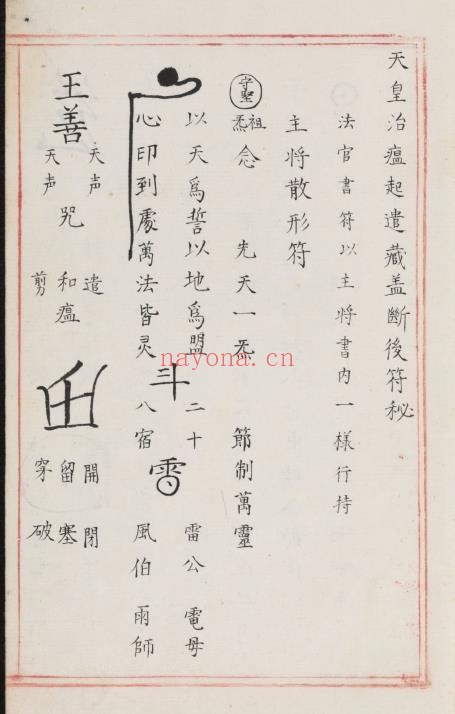 天皇治瘟起遣藏盖斷後符秘
法官書符以主將書内一樣行持
主將散形符
守聖 祖炁 念 先天一炁 節制萬靈
以天爲誓以地爲盟 二十 雷公 電母
心印到處萬法皆灵 斗 八宿 雷 風伯 雨師
王善 天声 天声 咒 遣 和瘟 剪 開 閉 留 塞 穿 破
nayona.cn